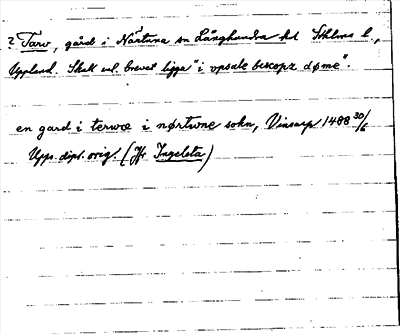 ? Tarv, gård i Närtuna sn Långhundra hd Sthlms l.,
Uppland. Skall enl. brevet ligga "i vpsale biscops døme".
en gard i terwæ i nørtwne sokn, Vinsarp 1488 30/6
Upps. dipl. orig. (Jfr Ingelsta)